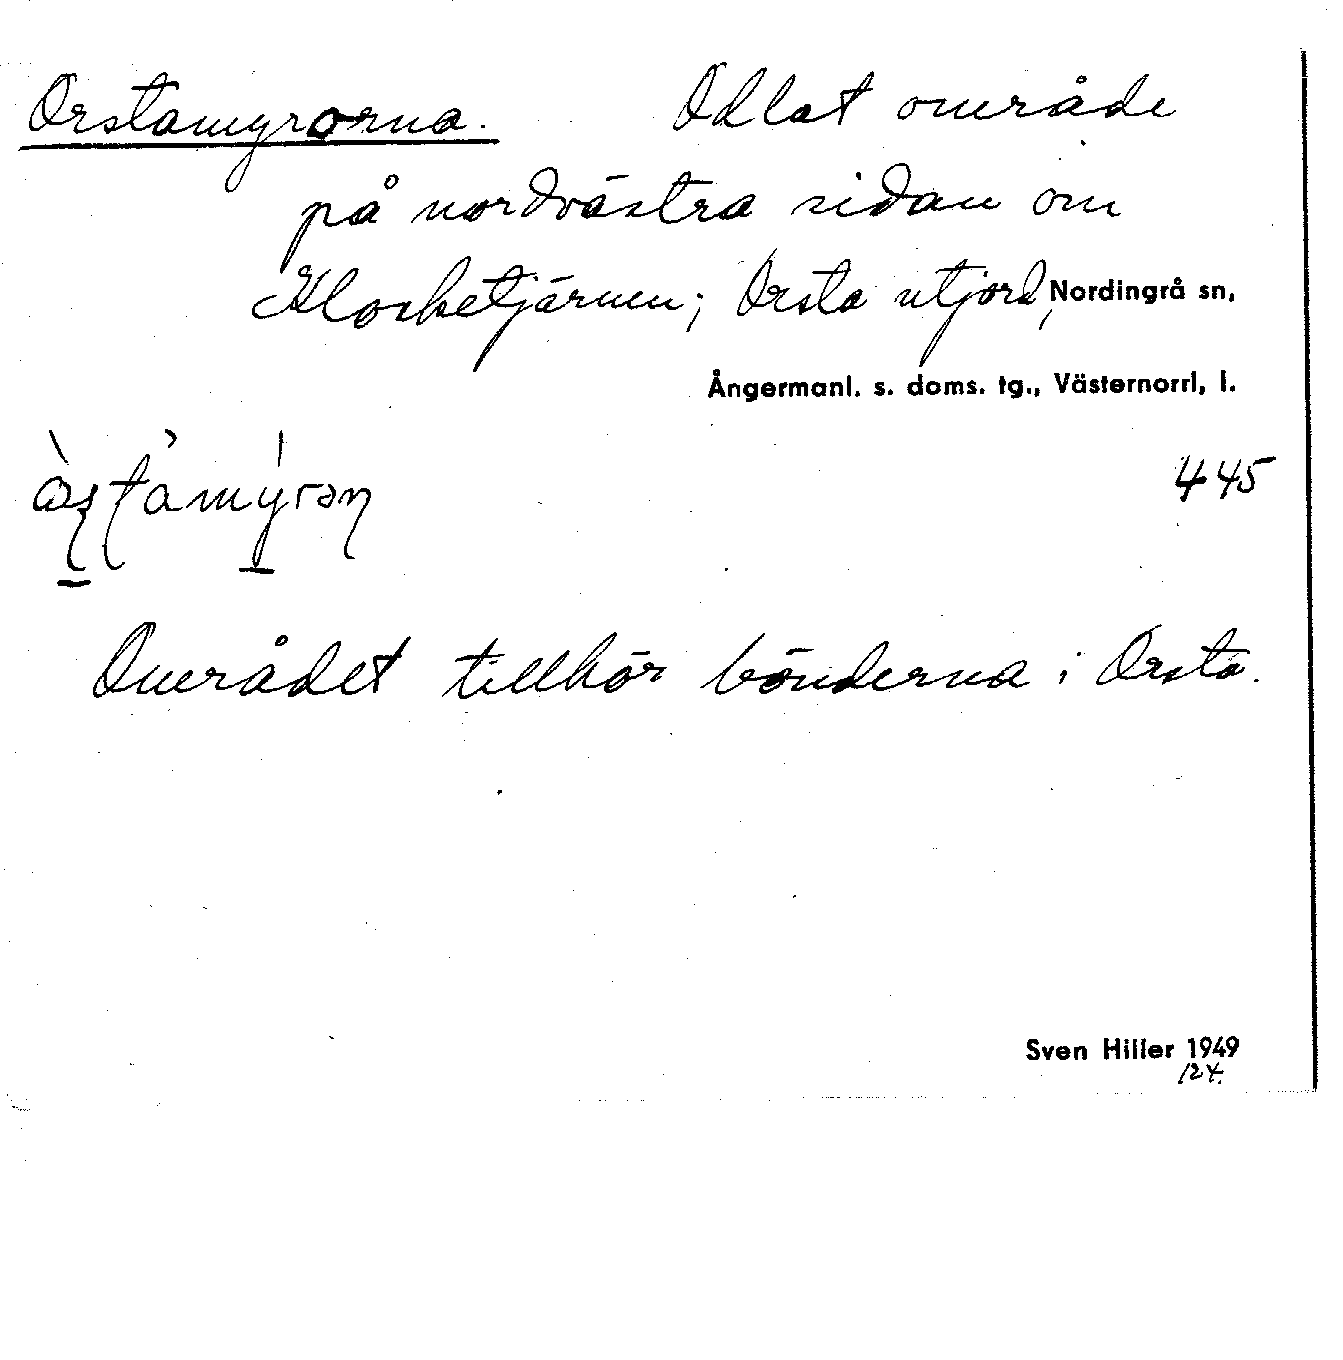 Orstamyrorna. Odlat område
på nordvästra sidan om
Klocketjärnen; Orsta utjord, Nordingrå sn,
Ångermanl. s. doms. tg., Västernorrl, l.
445
Området tillhör bönderna i Orsta.
Sven Hiller 1949